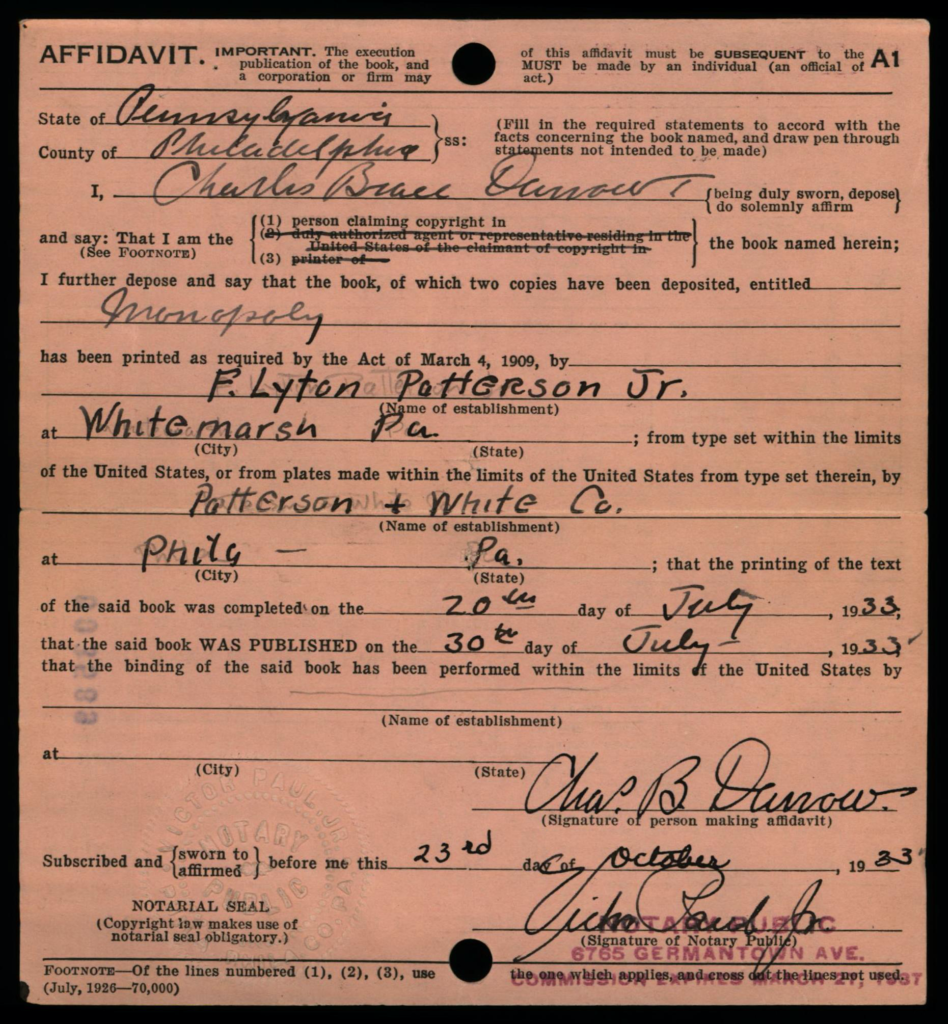 AFFIDAVIT. IMPORTANT. The execution of this affidavit must be SUBSEQUENT to the A1
publication of the book, and MUST be made by an individual (an official of
a corporation or firm may act.)
State of Pennsylvania
County of Philadelphia } ss: (Fill in the required statements to accord with the
facts concerning the book named, and draw pen through
statements not intended to be made)
I, Charles Brace Darrow {being duly sworn, depose}
do solemnly affirm
and say: That I am the (1) person claiming copyright in
(See FOOTNOTE) (2) duly authorized agent or representative residing in the
United States of the claimant of copyright in
(3) printer of
the book named herein;
I further depose and say that the book, of which two copies have been deposited, entitled
Monopoly
has been printed as required by the Act of March 4, 1909, by
F. Lyton Patterson Jr.
(Name of establishment)
at Whitemarsh Pa ; from type set within the limits
(City) (State)
of the United States, or from plates made within the limits of the United States from type set therein, by
Patterson + White Co.
(Name of establishment)
at Phila — Pa. ; that the printing of the text
(City) (State)
of the said book was completed on the 20th day of July, 1933;
that the said book WAS PUBLISHED on the 30th day of July, 1933;
that the binding of the said book has been performed within the limits of the United States by
(Name of establishment)
at
(City) (State)
Chas. B. Darrow.
(Signature of person making affidavit)
Subscribed and {sworn to
affirmed} before me this 23rd day of October 1933
NOTARIAL SEAL
(Copyright law makes use of
notarial seal obligatory.)
Victor Paul Jr.
NOTARY PUBLIC
(Signature of Notary Public)
6765 GERMANTOWN AVE.
COMMISSION EXPIRES MARCH 21, 1937
FOOTNOTE—Of the lines numbered (1), (2), (3), use the one which applies, and cross out the lines not used.
(July, 1926—70,000)